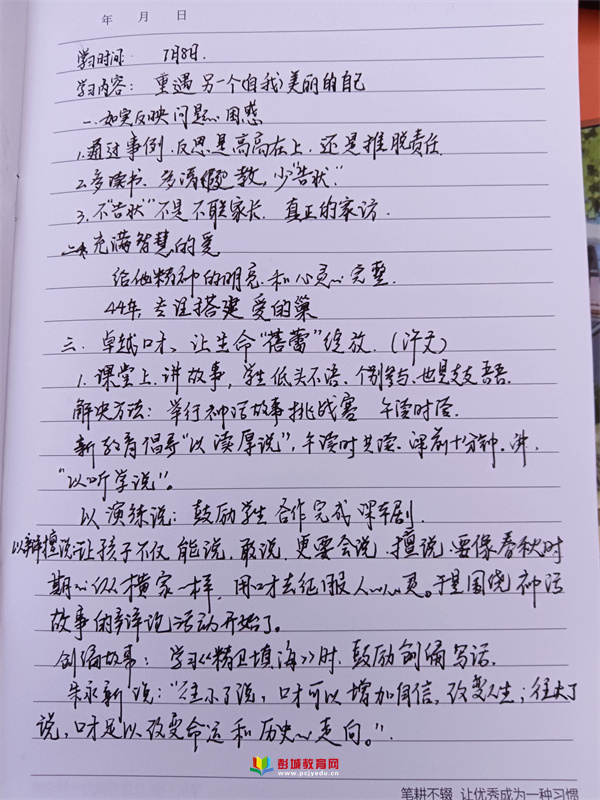 年 月 日
学习时间: 7月8日.
学习内容: 重遇另一个(自我)美丽的自己
一、如实反映问题、困惑
1.通过事例.反思是高高在上.还是推脱责任.
2.多读书.多请教,少“告状”
3.不“告状”不是不联家长.真正的家访.
二、充满智慧的爱
给他精神的明亮.和心灵完整.
44年.专注搭建爱的巢
三、卓越口才、让生命“蓓蕾”绽放.(许文)
1.课堂上.讲故事,学生低头不语、个别参与.也是支支吾吾.
解决方法:举行神话故事挑战赛 午读时段.
新教育倡导“以读厚说”,午读时共读.课前十分钟.讲.
“以听学说”。
以演练说:鼓励学生合作完成课本剧.
以辩擅说:让孩子不仅能说.敢说.更要会说.擅说.要像春秋时
期纵横家一样,用口才去征服人.于是围绕神话
故事的辩论活动开始了。
创编故事:学习《精卫填海》时.鼓励创编写话.
朱永新说:“往小了说,口才可以增加自信,改变人生;往大了
说,口才足以改变命运和历史走向。”.
彭城教育网
www.pcjyedu.cn
笔耕不辍 让优秀成为一种习惯